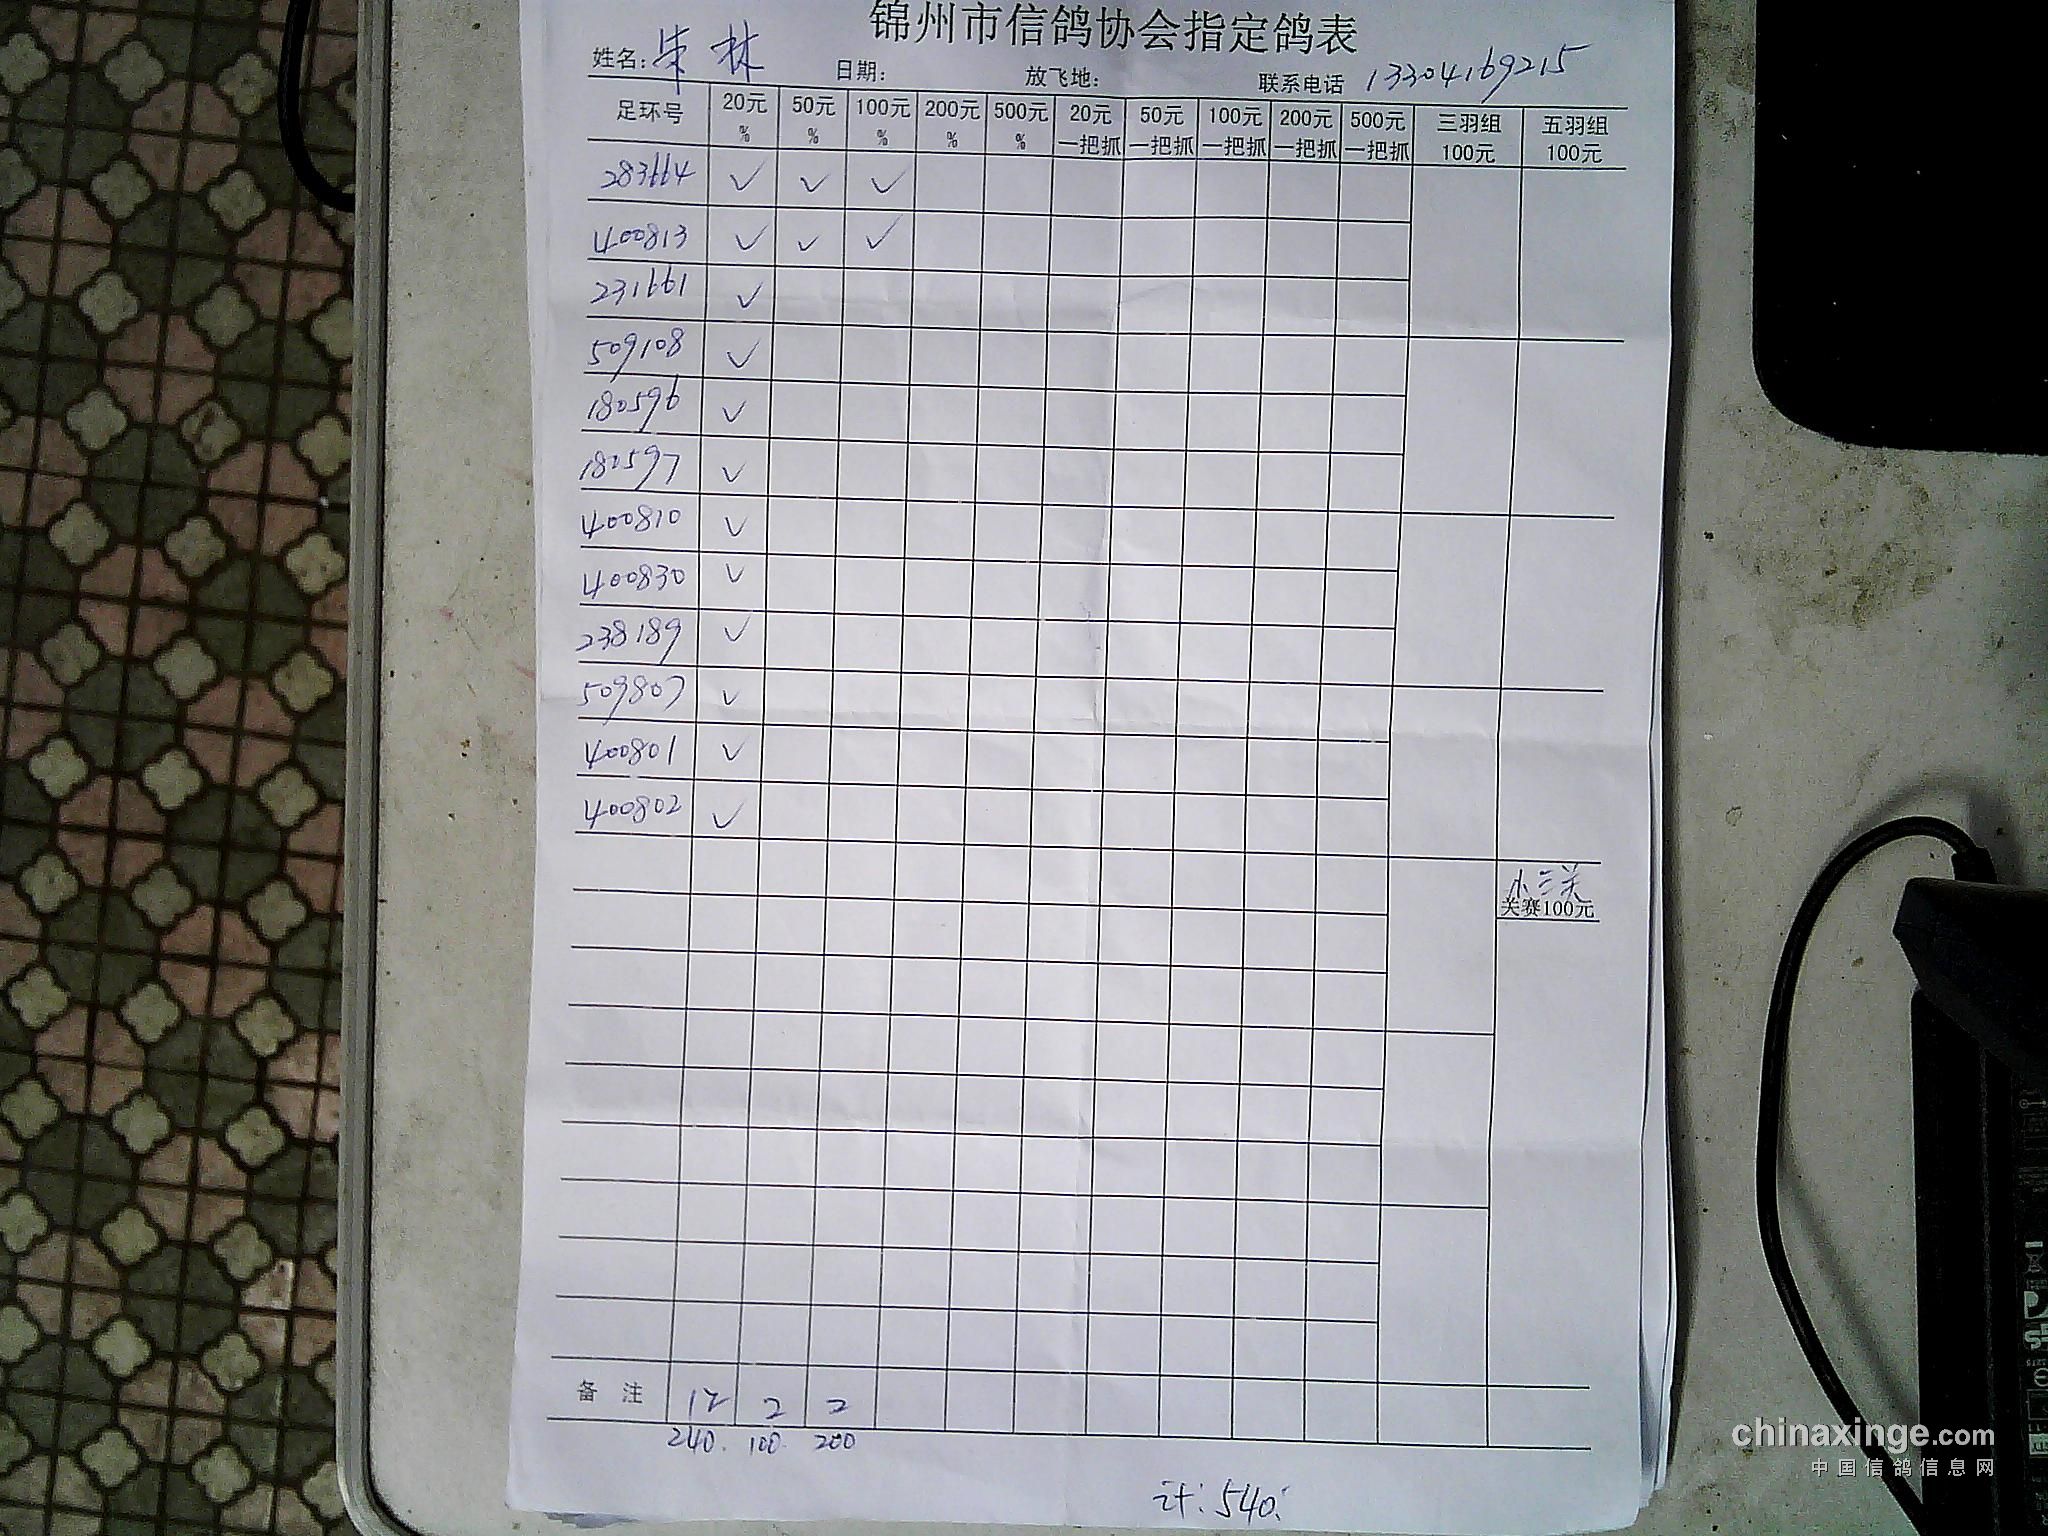 锦州市信鸽协会指定鸽表
姓名: 朱林 日期: 放飞地: 联系电话 13304169215
足环号 20元 % 50元 % 100元 % 200元 % 500元 % 20元 一把抓 50元 一把抓 100元 一把抓 200元 一把抓 500元 一把抓 三羽组 100元 五羽组 100元
283664 ✓ ✓ ✓
400813 ✓ ✓ ✓
231661 ✓
509108 ✓
180596 ✓
180597 ✓
400810 ✓
400830 ✓
238189 ✓
509807 ✓
400801 ✓
400802 ✓
小三关
关赛100元
备 注 12 2 2
240. 100. 200
计: 540.
chinaxinge.com
中国信鸽信息网